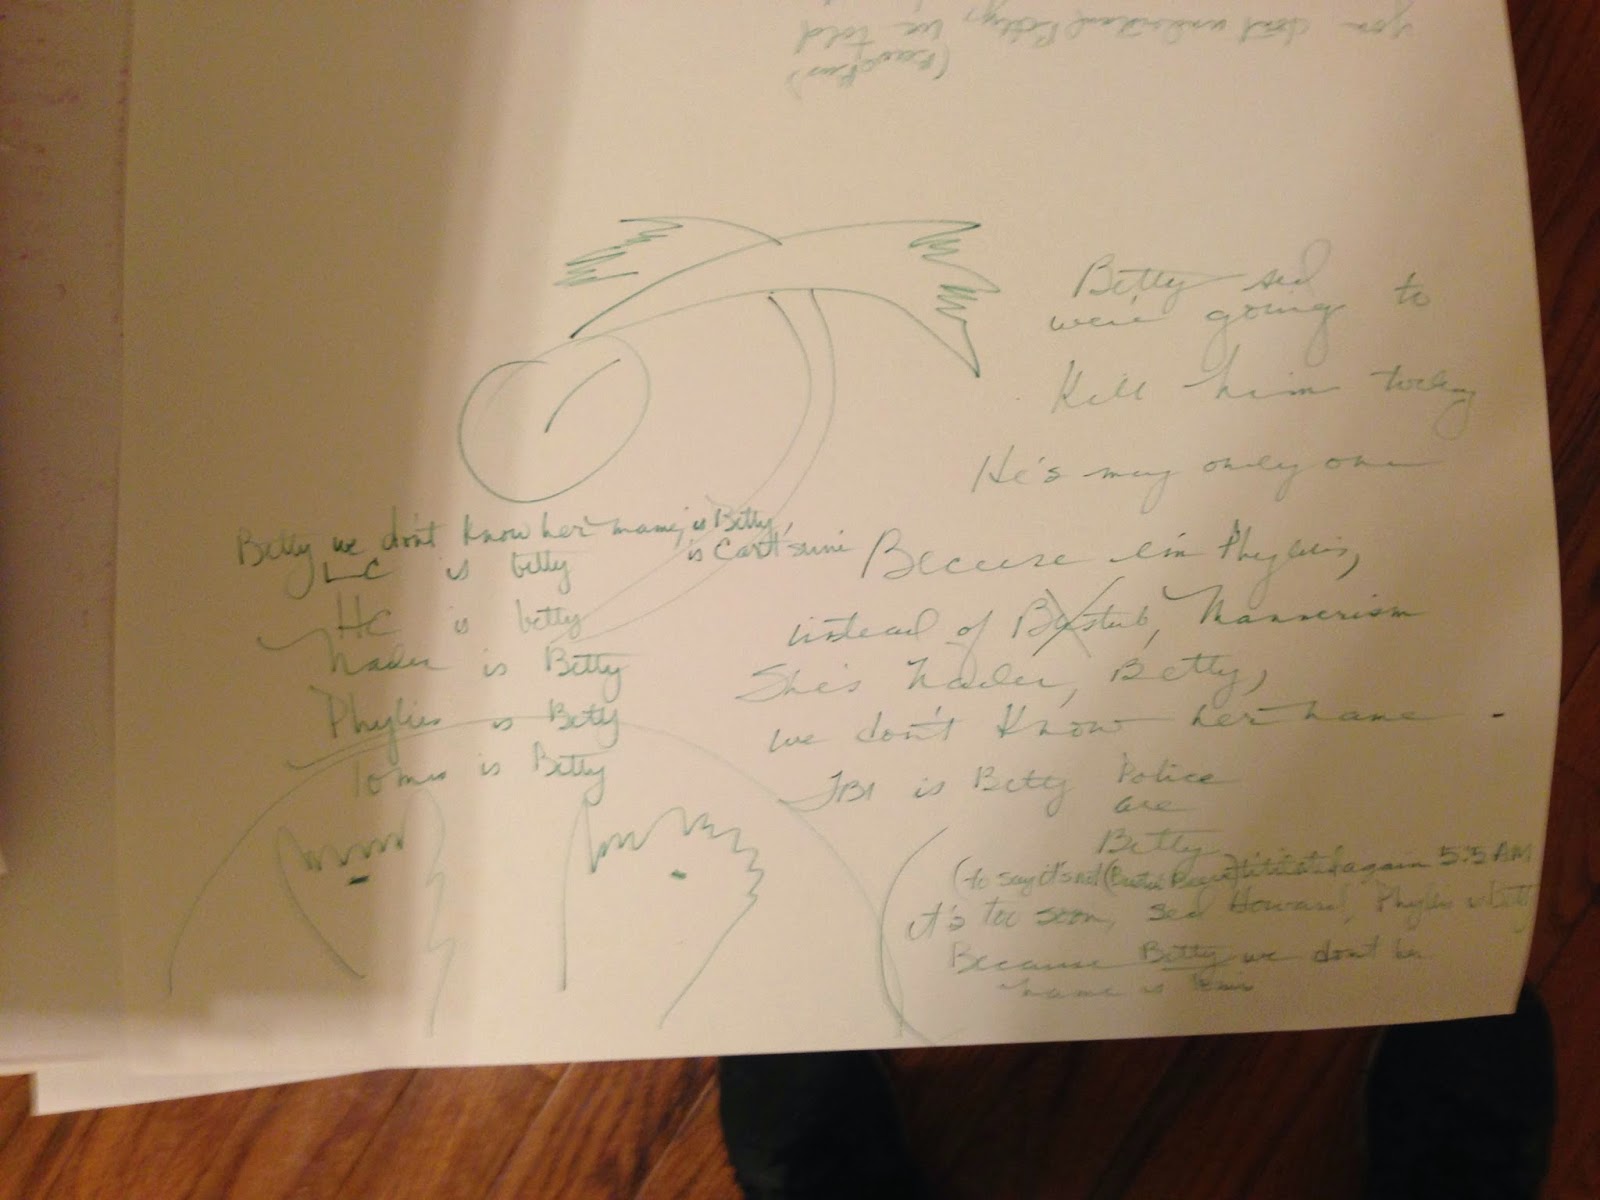 you don't understand Betty, we told
Betty sed
we're going to
Kill him today
He's my only one
Betty we don't know her name, is Betty,
LC is betty is
HC is betty
Nader is Betty
Phyllis is Betty
is Betty
Because I'm Phyllis,
instead of Mannerism
She's Nader, Betty,
we don't know her name
is Betty Police
are
Betty
(to say it's not again 5:5 AM
it's too soon, sed Howard, Phyllis is Betty
Because Betty we don't her
name is